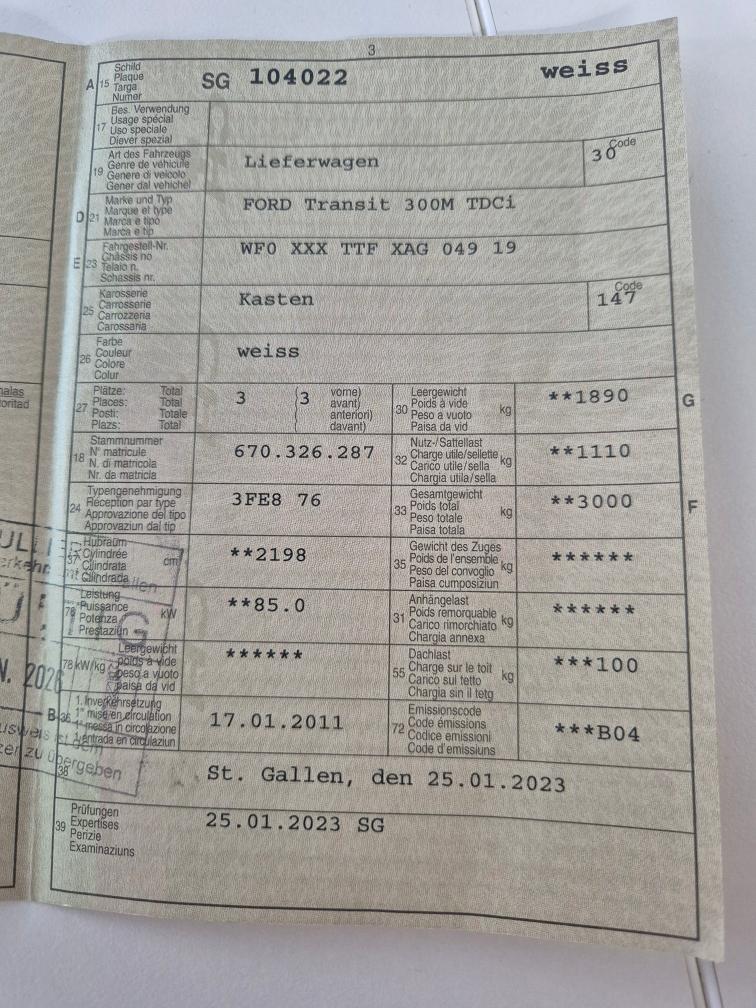 3
A 15 Schild Plaque Targa Numer SG 104022 weiss
17 Bes. Verwendung Usage spécial Uso speciale Diever spezial
19 Art des Fahrzeugs Genre de véhicule Genere di veicolo Gener dal vehichel Lieferwagen Code 30
D 21 Marke und Typ Marque et type Marca e tipo Marca e tip FORD Transit 300M TDCi
E 23 Fahrgestell-Nr. Châssis no Telaio n. Schassis nr. WF0 XXX TTF XAG 049 19
25 Karosserie Carrosserie Carrozzeria Carossaria Kasten Code 147
26 Farbe Couleur Colore Colur weiss
27 Plätze: Total Places: Total Posti: Totale Plazs: Total 3 (3 vorne) avant) anteriori) davant)
30 Leergewicht Poids à vide Peso a vuoto Paisa da vid kg **1890 G
18 Stammnummer N° matricule N. di matricola Nr. da matricla 670.326.287
32 Nutz-/Sattellast Charge utile/sellette Carico utile/sella Chargia utila/sella kg **1110
24 Typengenehmigung Réception par type Approvazione del tipo Approvaziun dal tip 3FE8 76
33 Gesamtgewicht Poids total Peso totale Paisa totala kg **3000 F
37 Hubraum Cylindrée Cilindrata Cilindrada cm³ **2198
35 Gewicht des Zuges Poids de l'ensemble Peso del convoglio Paisa cumposiziun kg ******
76 Leistung Puissance Potenza Prestaziun kW **85.0
31 Anhängelast Poids remorquable Carico rimorchiato Chargia annexa kg ******
78 kW/kg Leergewicht poids à vide peso a vuoto paisa da vid ******
55 Dachlast Charge sur le toit Carico sul tetto Chargia sin il tetg kg ***100
B 36 1. Inverkehrsetzung 1re mise en circulation 1a messa in circolazione 1. entrada en circulaziun 17.01.2011
72 Emissionscode Code émissions Codice emissioni Code d'emissiuns ***B04
38 St. Gallen, den 25.01.2023
39 Prüfungen Expertises Perizie Examinaziuns 25.01.2023 SG
2026
übergeben